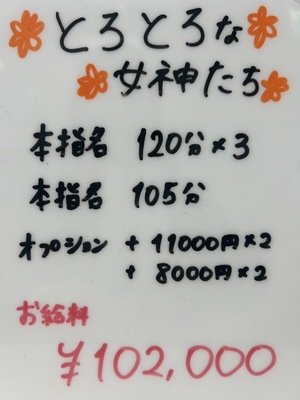 とろとろな
女神たち
本指名 120分×3
本指名 105分
オプション + 11000円×2
+ 8000円×2
お給料
¥102,000